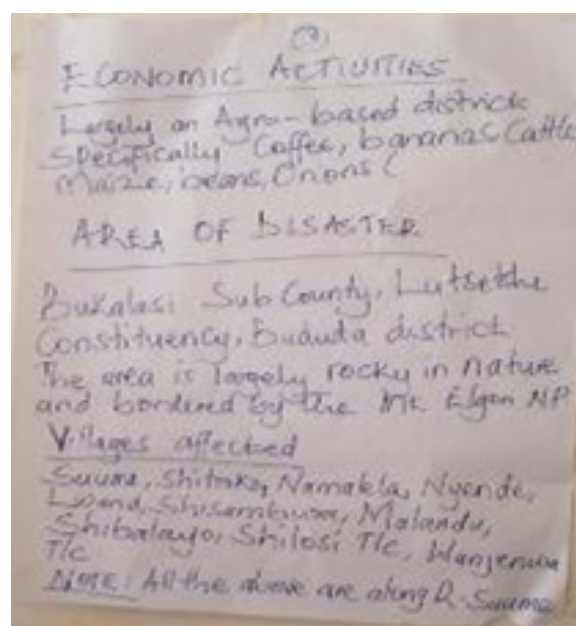 (3)
ECONOMIC ACTIVITIES
Largely an Agro-based district
Specifically Coffee, bananas Cattle
Maize, beans, Onions (
AREA OF DISASTER
Bukalasi Sub County, Lutseshe
Constituency, Bududa district
The area is largely rocky in nature
and bordered by the Mt Elgon NP
Villages affected
Suume, Namakela, Nyende,
Malandu,
Shibalayo, Shilosi T/c, Wanjenwa
T/c
NOTE: All the above are along R. Suume